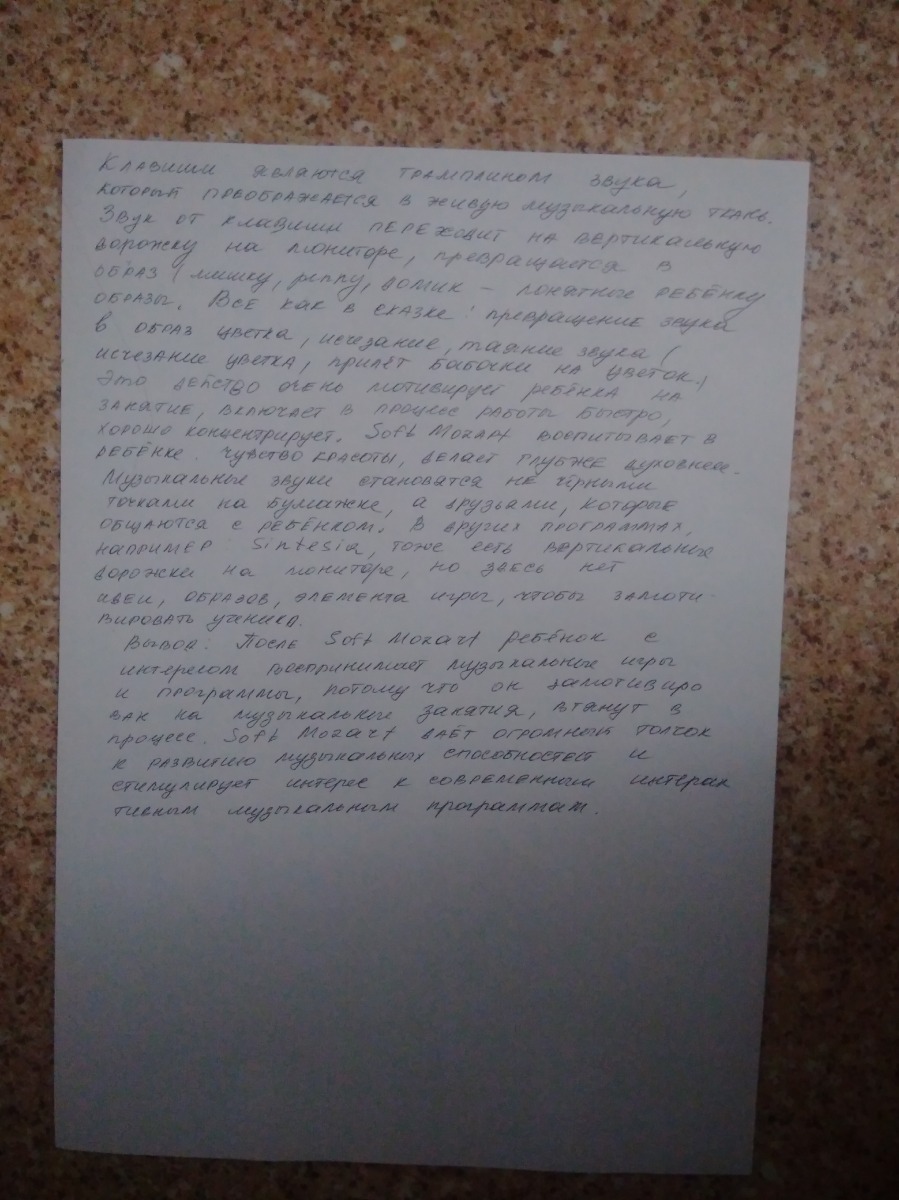 Клавиши являются трамплином звука,
который преображается в живую музыкальную ткань.
Звук от клавиши переходит на вертикальную
дорожку на мониторе, превращается в
образ (мишку, репку, домик – понятные ребёнку
образы. Все как в сказке: превращение звука
в образ цветка, исчезание, таяние звука (
исчезание цветка, прилёт бабочки на цветок.)
Это действо очень мотивирует ребёнка на
занятие, включает в процесс работы быстро,
хорошо концентрирует. Soft Mozart воспитывает в
ребёнке чувство красоты, делает глубже духовнее.
Музыкальные звуки становятся не чёрными
точками на бумажке, а друзьями, которые
общаются с ребёнком. В других программах,
например: Sintesia, тоже есть вертикальные
дорожки на мониторе, но здесь нет
идеи, образов, элемента игры, чтобы замоти-
вировать ученика.
Вывод: После Soft Mozart ребёнок с
интересом воспринимает музыкальные игры
и программы, потому что он замотивиро
ван на музыкальные занятия, втянут в
процесс. Soft Mozart даёт огромный толчок
к развитию музыкальных способностей и
стимулирует интерес к современным интерак
тивным музыкальным программам.